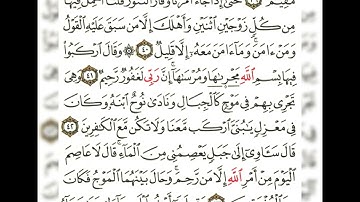 مُّقِيمٌ حَتَّىٰٓ إِذَا جَآءَ أَمْرُنَا وَفَارَ ٱلتَّنُّورُ قُلْنَا ٱحْمِلْ فِيهَا
مِن كُلٍّ زَوْجَيْنِ ٱثْنَيْنِ وَأَهْلَكَ إِلَّا مَن سَبَقَ عَلَيْهِ ٱلْقَوْلُ
وَمَنْ ءَامَنَ وَمَآ ءَامَنَ مَعَهُۥٓ إِلَّا قَلِيلٌ ٤٠ وَقَالَ ٱرْكَبُوا۟
فِيهَا بِسْمِ ٱللَّهِ مَجْر۪ىٰهَا وَمُرْسَىٰهَآ إِنَّ رَبِّى لَغَفُورٌ رَّحِيمٌ ٤١ وَهِىَ
تَجْرِى بِهِمْ فِى مَوْجٍ كَٱلْجِبَالِ وَنَادَىٰ نُوحٌ ٱبْنَهُۥ وَكَانَ
فِى مَعْزِلٍ يَٰبُنَىَّ ٱرْكَب مَّعَنَا وَلَا تَكُن مَّعَ ٱلْكَٰفِرِينَ ٤٢
قَالَ سَـَٔاوِىٓ إِلَىٰ جَبَلٍ يَعْصِمُنِى مِنَ ٱلْمَآءِ قَالَ لَا عَاصِمَ
ٱلْيَوْمَ مِنْ أَمْرِ ٱللَّهِ إِلَّا مَن رَّحِمَ وَحَالَ بَيْنَهُمَا ٱلْمَوْجُ فَكَانَ